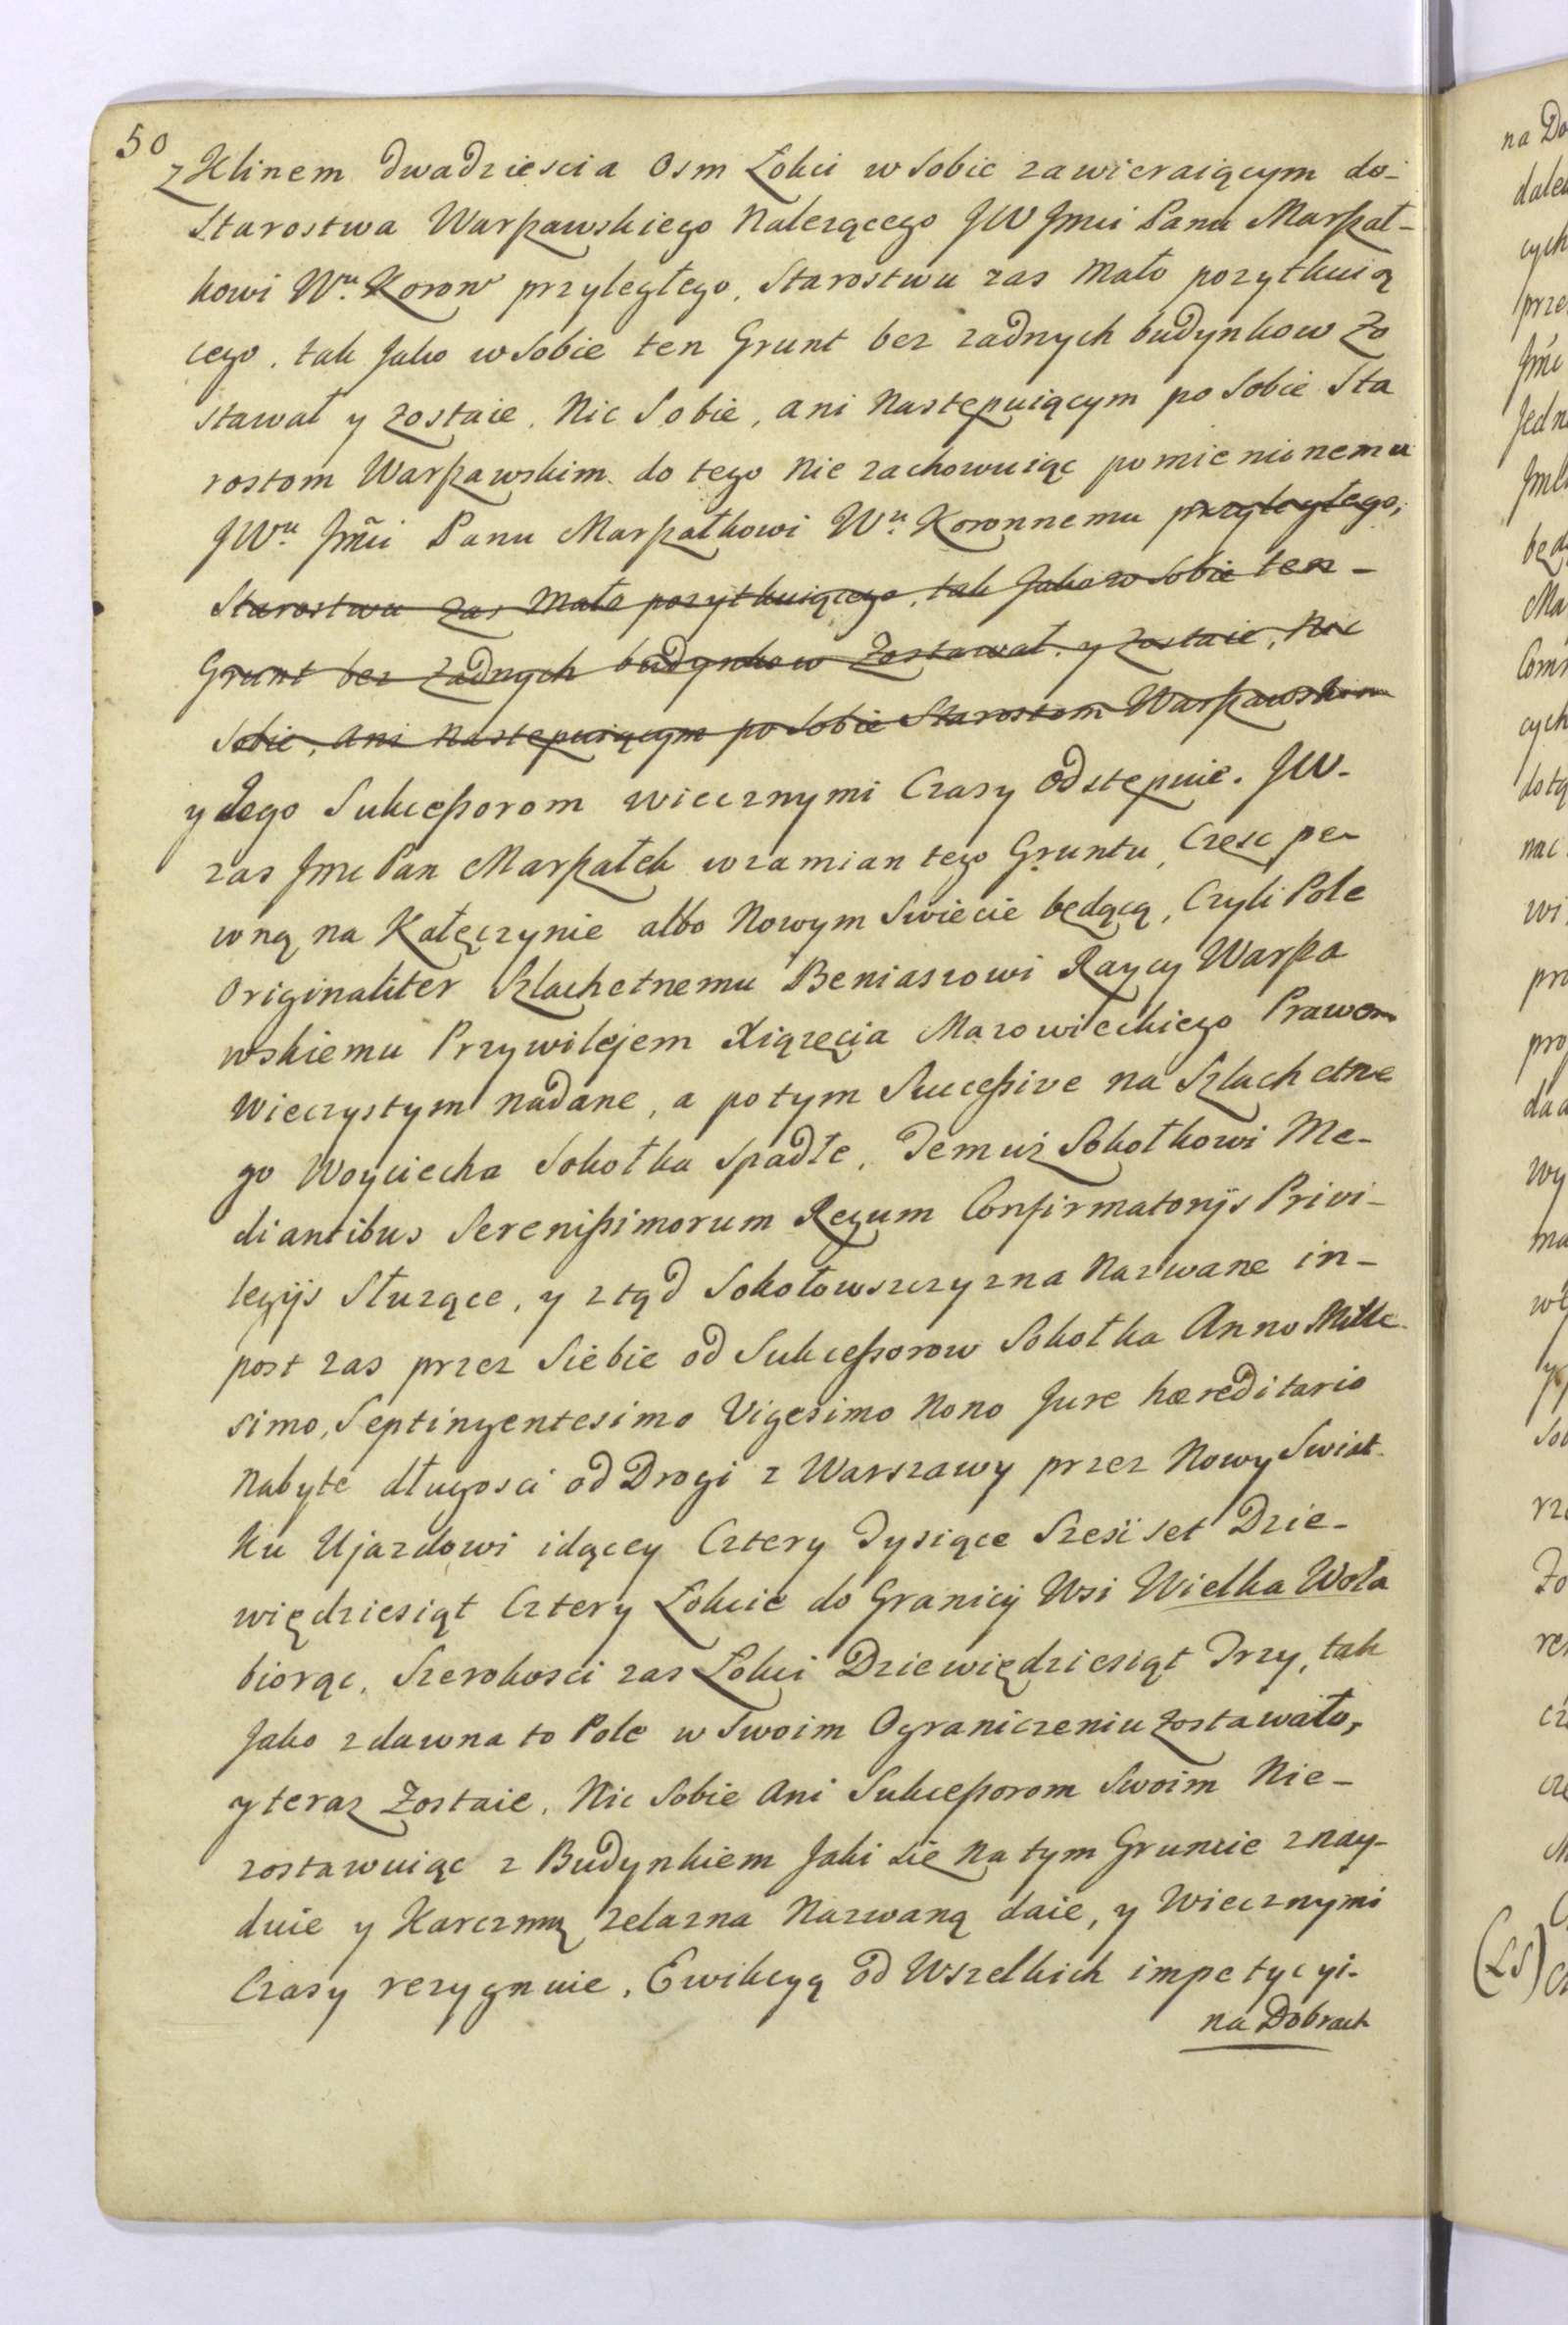 50
z Klinem dwadziescia Osm Łokci w Sobie zawieraiącym do-
Starostwa Warszawskiego Nalezącego JW Jmci Panu Marszał-
kowi Wu. Koron przyległego, Starostwu zas Mało pozytkuią
cego, tak Jako w Sobie ten Grunt bez zadnych budynkow Zo
stawał y zostaie, Nic Sobie, ani Następuiącym po Sobie Sta
rostom Warszawskim do tego Nie zachowuiąc pomienionemu
JWu Jmći Panu Marszałkowi Wu. Koronnemu przyległego,
Starostwu zas Mało pozytkuiącego, tak Jako w Sobie ten-
Grunt bez żadnych budynkow Zostawał y Zostaie, Nic
Sobie, ani Następuiącym po Sobie Starostom Warszawskim
y Jego Sukcessorom wiecznymi Czasy odstępuie. JW-
zas Jmc Pan Marszałek w zamian tego Gruntu, Częsc pe-
wną na Kałęczynie albo Nowym Swiecie będącą, Czyli Pole
Originaliter Szlachetnemu Beniaszowi Raycy Warsza
wskiemu Przywilejem Xiązęcia Mazowieckiego Prawem
Wieczystym nadane, a potym Successive na Szlachetne
go Woyciecha Sokołka Spadłe, Temuż Sokołkowi Me-
diantibus Serenissimorum Regum Confirmatorijs Privi-
legijs Słuzące, y ztąd Sokołowszczyzna Nazwane in-
post zas przez Siebie od Sukcessorow Sokołka Anno Mille-
simo, Septingentesimo Vigesimo Nono Jure hæreditario
Nabyte długosci od Drogi z Warszawy przez Nowy Swiat
Ku Ujazdowi idącey Cztery Tysiące Szesć set Dzie-
więdziesiąt Cztery Łokcie do Granicy Wsi Wielka Wola
biorąc, Szerokosci zas Łokci Dziewiędziesiąt Trzy, tak
Jako zdawna to Pole w Swoim Ograniczeniu zostawało,
y teraz Zostaie, Nic Sobie Ani Sukcessorom Swoim Nie-
zostawuiąc z Budynkiem Jaki się Na tym Gruncie znay-
duie y Karczmą zelazna Nazwaną daie, y Wiecznymi
Czasy rezygnuie, Ewikcyą od Wszelkich impetycyi-
na Dobrach